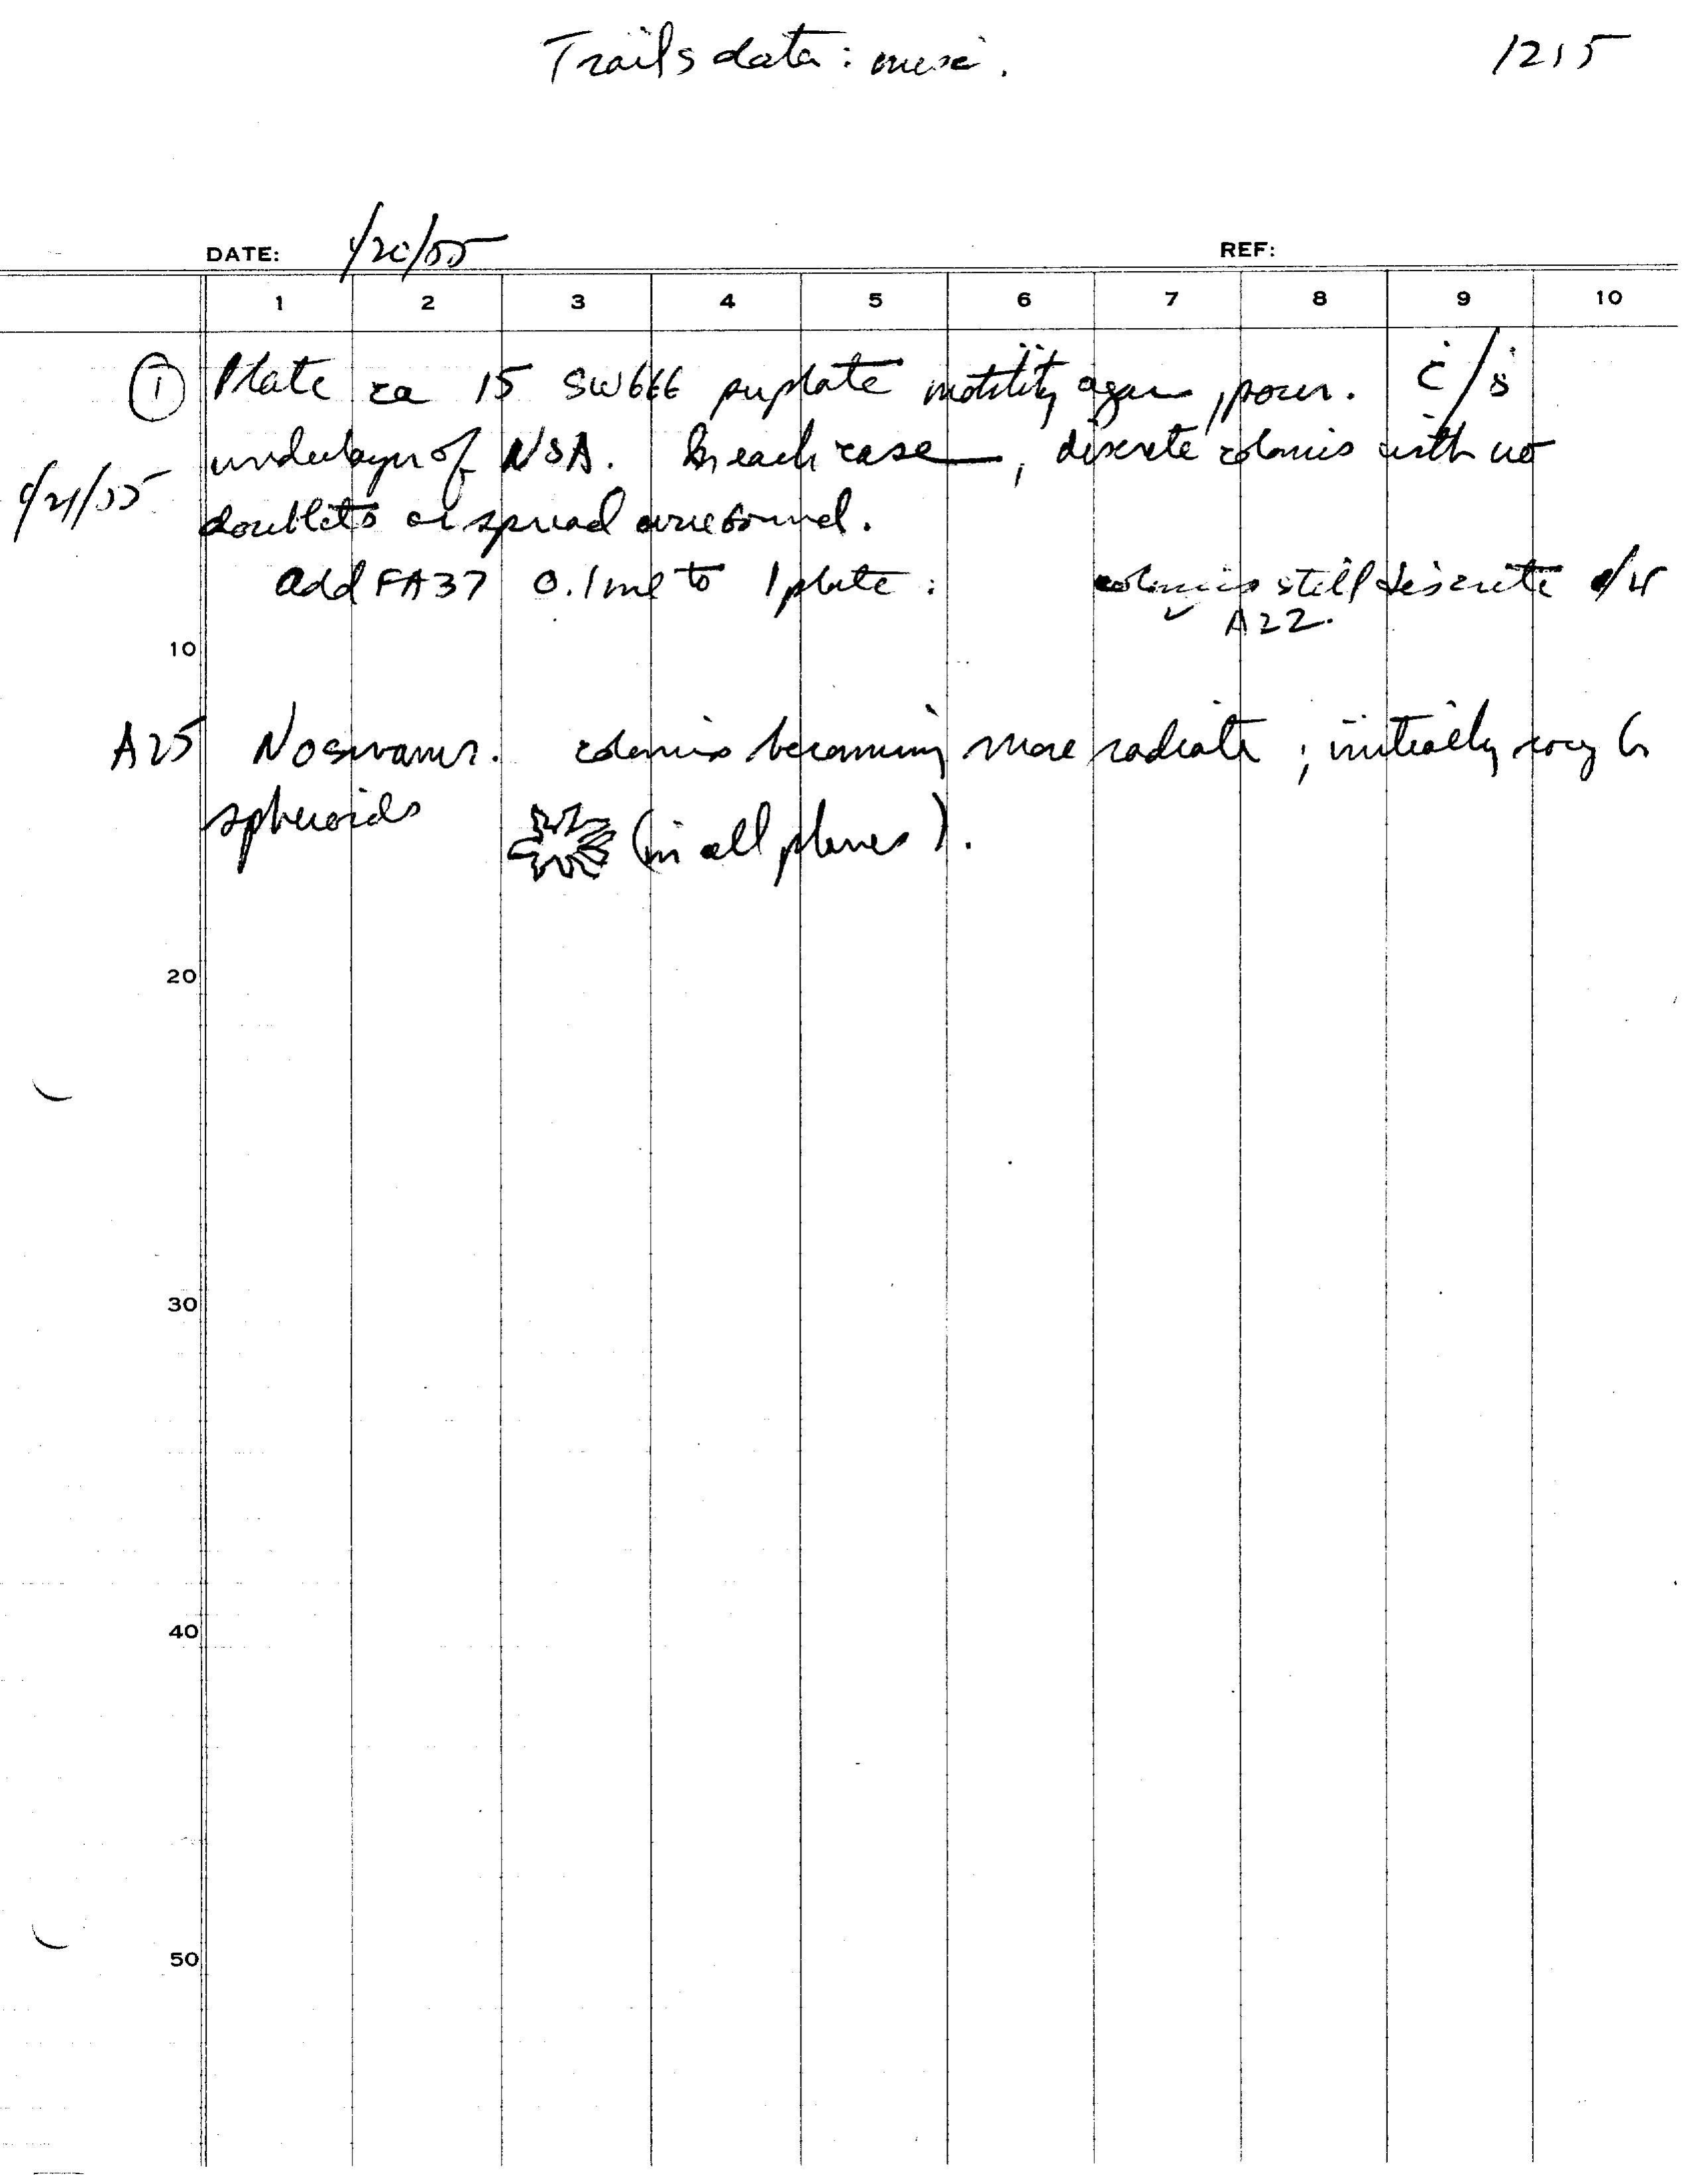 Trails data : misc. 1215
DATE: 4/20/55 REF:
1 2 3 4 5 6 7 8 9 10
① Plate ca 15 SW666 per plate motility agar, pour. c̄/s̄
underlayer of NSA. In each case, discrete colonies with no
4/21/55
doublets or spread were found.
add FA37 0.1 ml to 1 plate : colonies still discrete
A22.
10
A25 No swarms. colonies becoming more radiate ; initially
spheroids (in all planes).
20
30
40
50